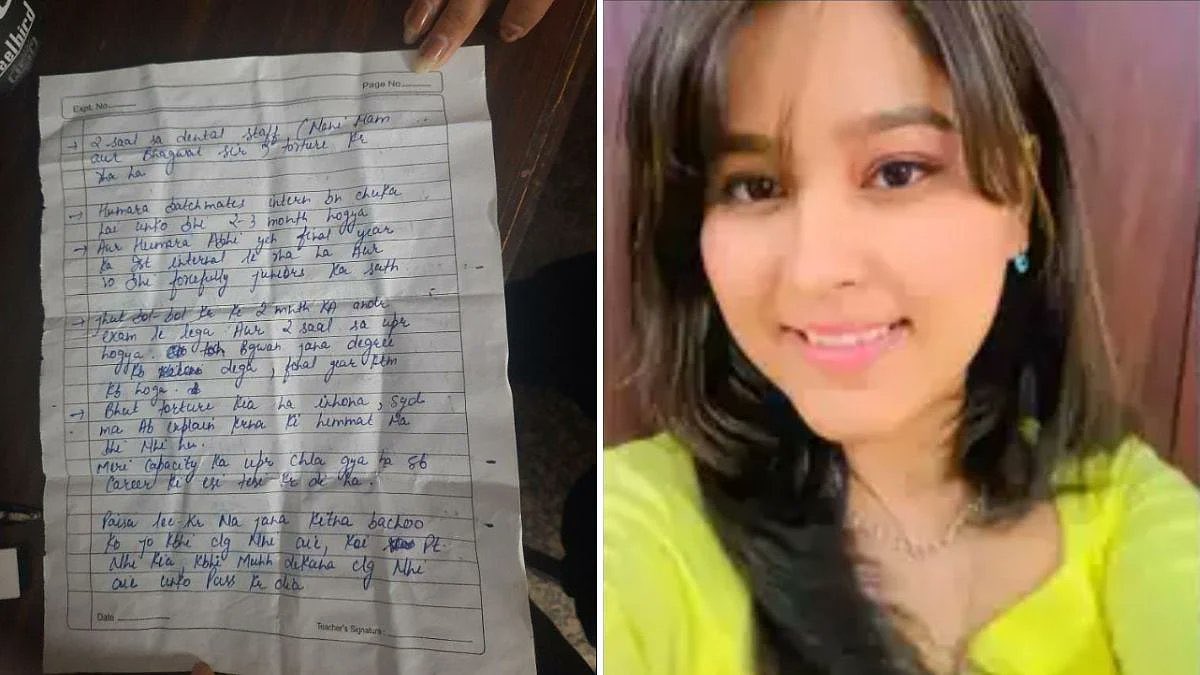 aelbird
Expt. No.
Page No.
→ 2 saal sa dental staff, (Nani Mam
aur Bhagwat sir) torture kr
rha ha
→ Humara batchmates intern bn chuka
hai unko bhi 2-3 month hogya
→ Aur Humara Abhi yeh final year
ka Ist internal le rha ha Aur
vo bhi forcefully juniors ka sath
→ jhut bol-bol kr ke 2 month KA andr
exam le lega Aur 2 saal sa upr
hogya. Bgwan jana degree
kb dega, final year khtm
kb hoga.
→ Bhut torture kia ha inhona,
ma Ab explain krna ki himmat ha
bhi Nhi hu.
Meri capacity ka upr chla gya ha sb
Career ki esi tesi kr di ha.
Paisa lee-kr Na jana kitna bachoo
ko jo kbhi clg Nhi aic, koi Pt
Nhi kia, kbhi Muhh dikana clg Nhi
aic unko Pass kr dia
Date
Teacher's Signature: